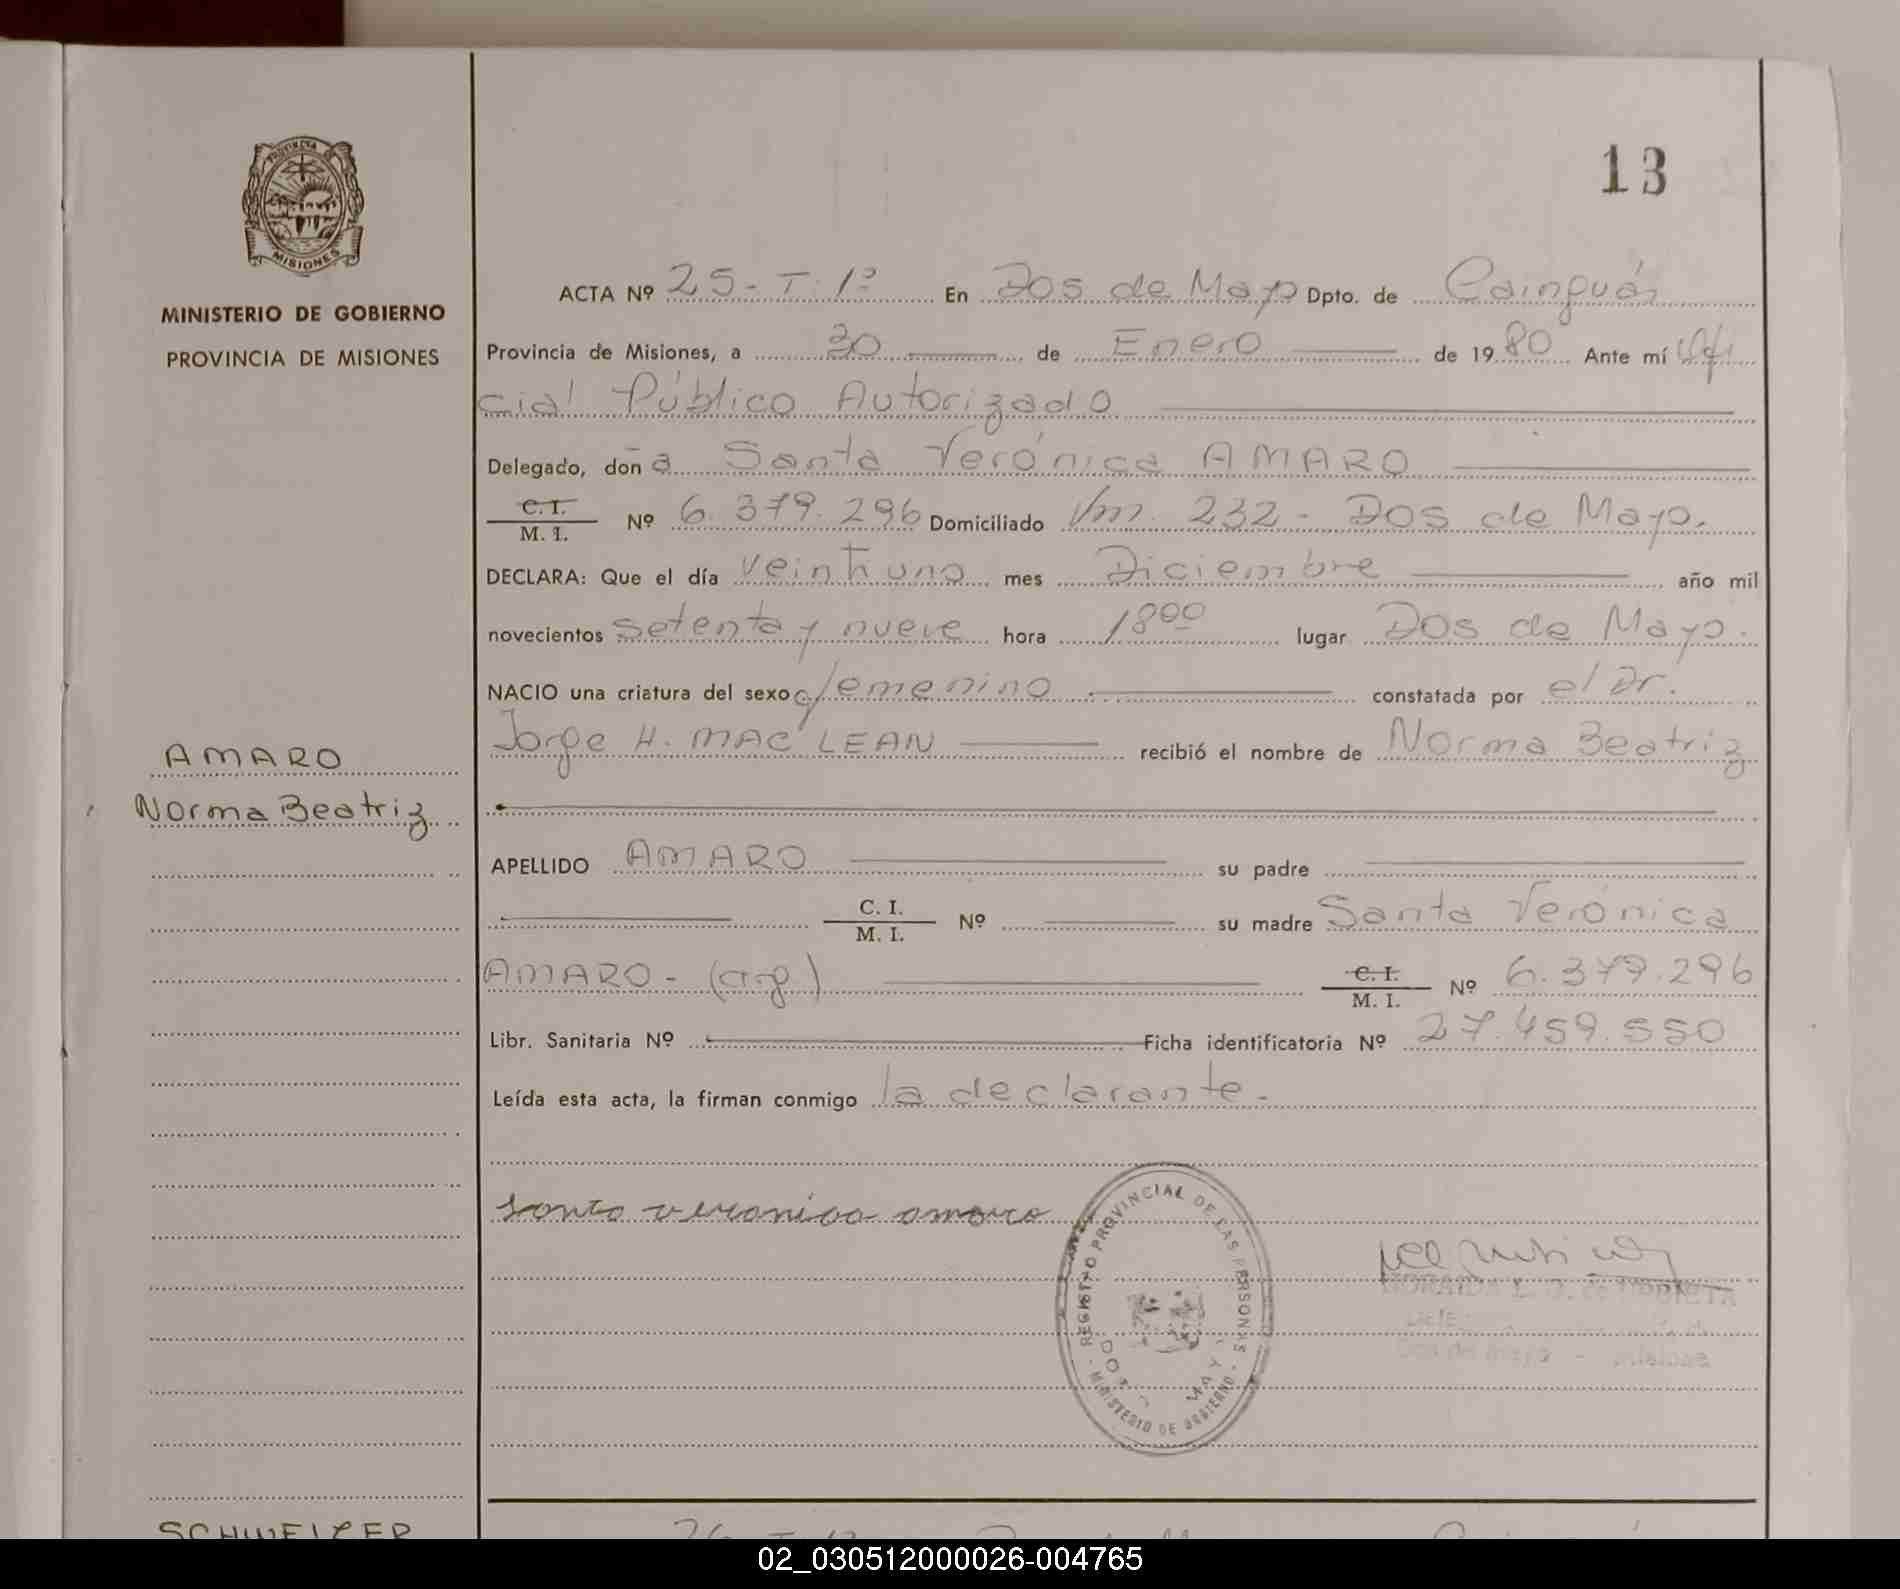 13
PROVINCIA DE
MISIONES
MINISTERIO DE GOBIERNO
PROVINCIA DE MISIONES
ACTA Nº 25 - T. 1º En Dos de Mayo Dpto. de Cainguás
Provincia de Misiones, a 30 de Enero de 1980 Ante mí Ofi
cial Público Autorizado
Delegado, doña Santa Verónica AMARO
C. I.
M. I. Nº 6.379.296 Domiciliado Km. 232 - Dos de Mayo.
DECLARA: Que el día veintiuno mes Diciembre año mil
novecientos setenta y nueve hora 18 00 lugar Dos de Mayo.
NACIO una criatura del sexo femenino constatada por el Dr.
Jorge H. MAC LEAN recibió el nombre de Norma Beatriz
AMARO
Norma Beatriz
APELLIDO AMARO su padre
C. I.
M. I. Nº su madre Santa Verónica
AMARO - (arg) C. I.
M. I. Nº 6.379.296
Libr. Sanitaria Nº Ficha identificatoria Nº 27.459.550
Leída esta acta, la firman conmigo la declarante.-
santa veronica amaro
REGISTRO PROVINCIAL DE LAS PERSONAS
MINISTERIO DE GOBIERNO
Dos de Mayo - Misiones
SCHWEIZER
02_030512000026-004765